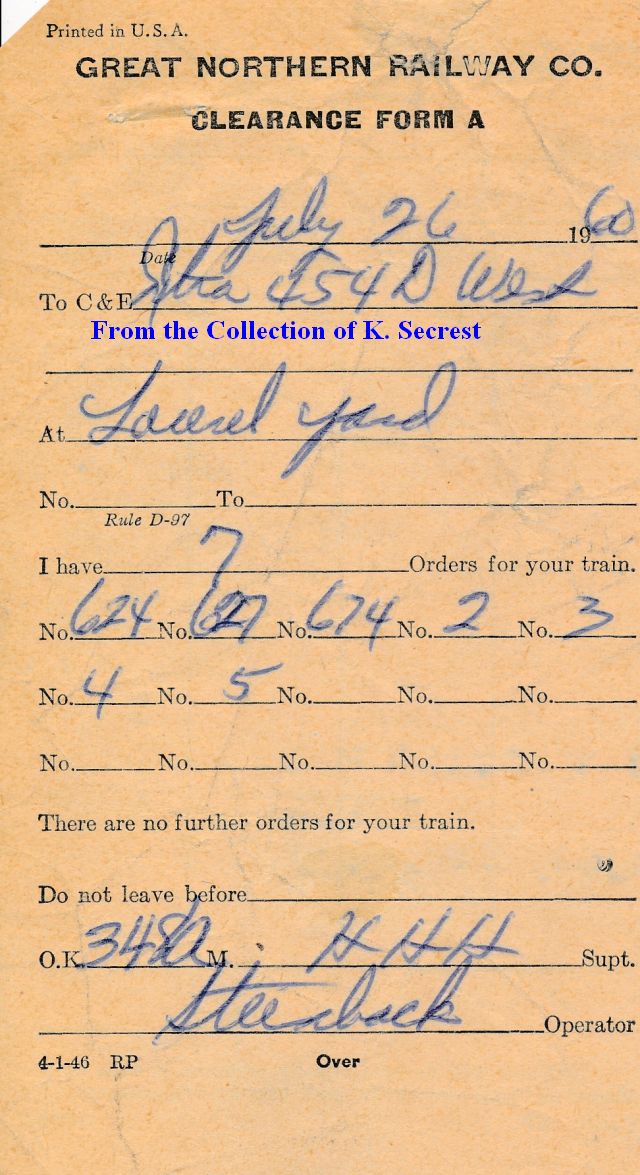 Printed in U.S.A.
GREAT NORTHERN RAILWAY CO.
CLEARANCE FORM A
July 26 1960
Date
To C & E Xtra 454 D West
From the Collection of K. Secrest
At Laurel yard
No. To
Rule D-97
I have 7 Orders for your train.
No. 624 No. 627 No. 674 No. 2 No. 3
No. 4 No. 5 No. No. No.
No. No. No. No. No.
There are no further orders for your train.
Do not leave before
O.K. 348 A M. H H H Supt.
Steinback Operator
4-1-46 RP Over